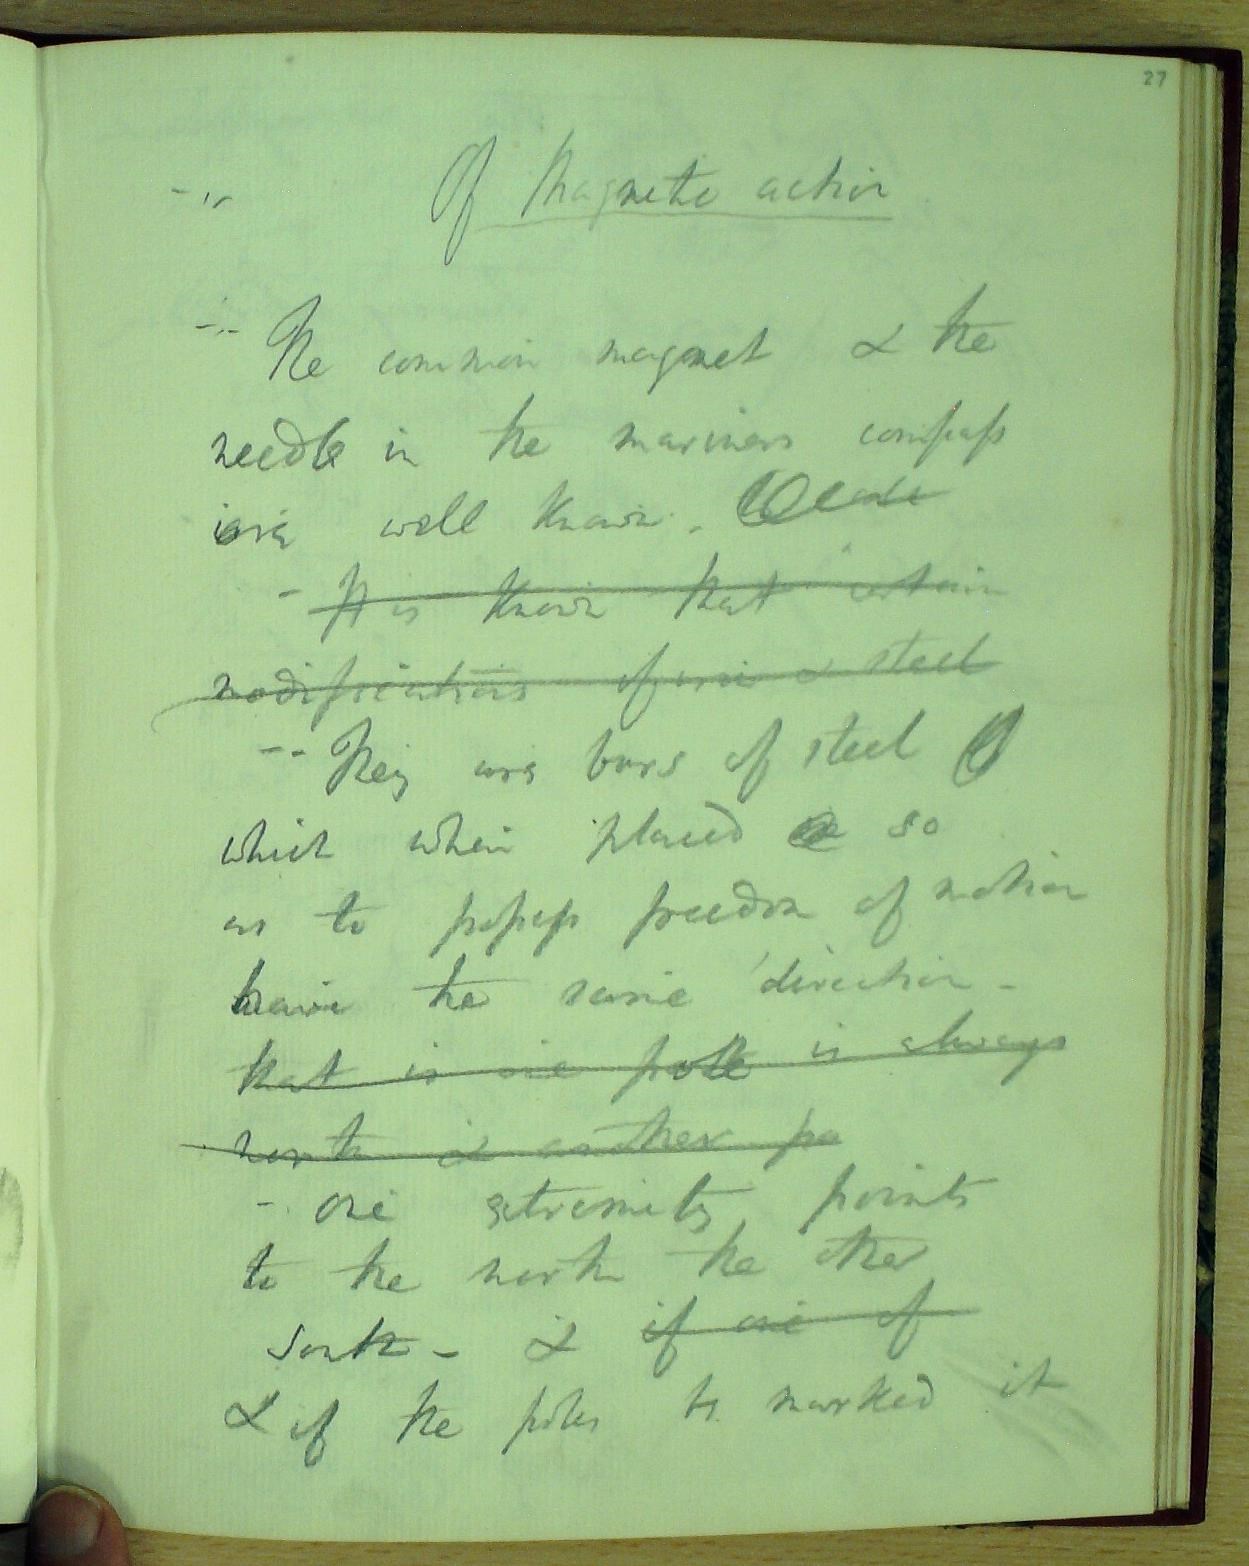 27
Of Magnetic action
The common magnet & the
needle in the mariners compass
are well known.
- It is known that certain
modifications of iron & steel
-- They are bars of steel
which when placed so
as to possess freedom of motion
have the same direction -
that is one pole is always
north & another po
- one extremity points
to the north the other
South - & if one of
& if the poles be marked it